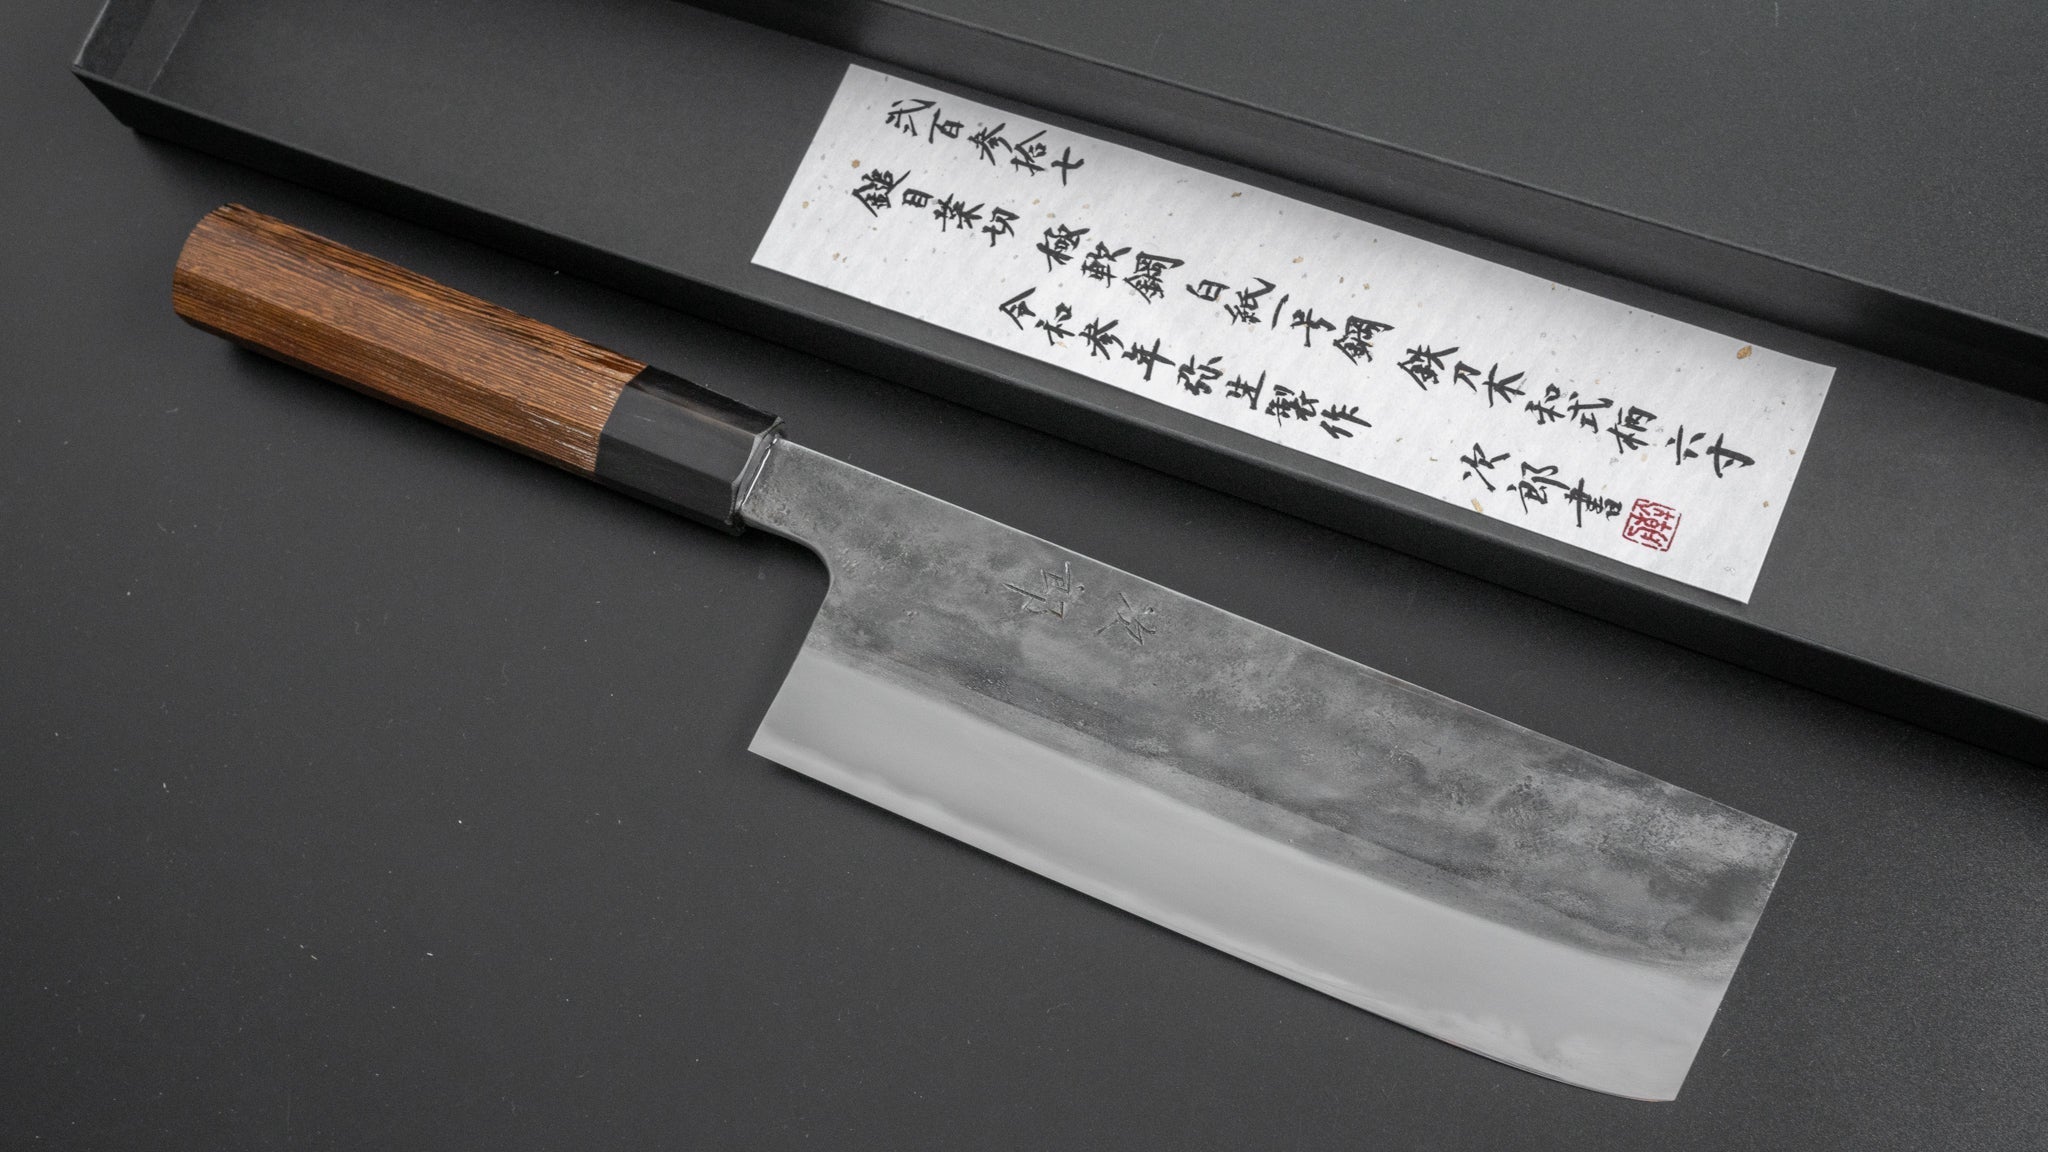 弐百参拾七
鎚目菜切 極軟鋼 白紙一号鋼 鉄刀木 和式柄 六寸
令和参年弥生製作
次郎書
次郎